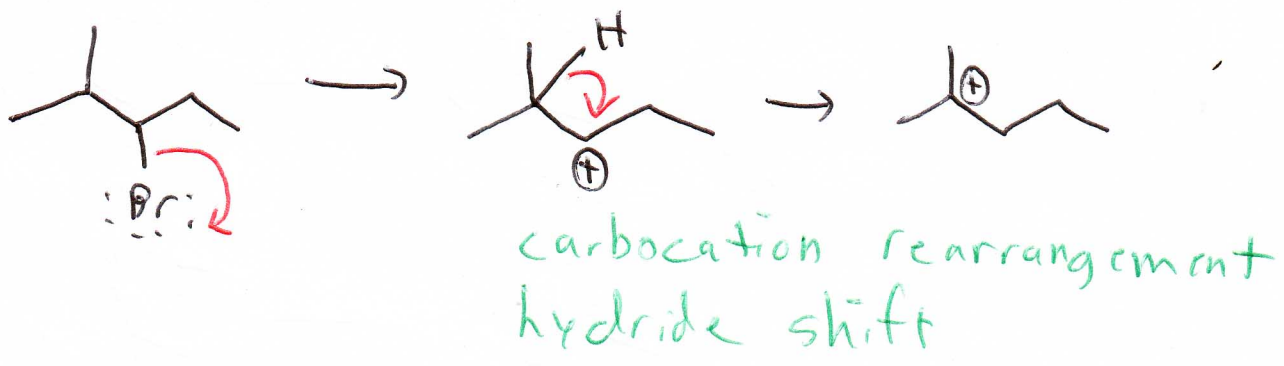 H
⊕
⊕
:Br:
carbocation rearrangement
hydride shift